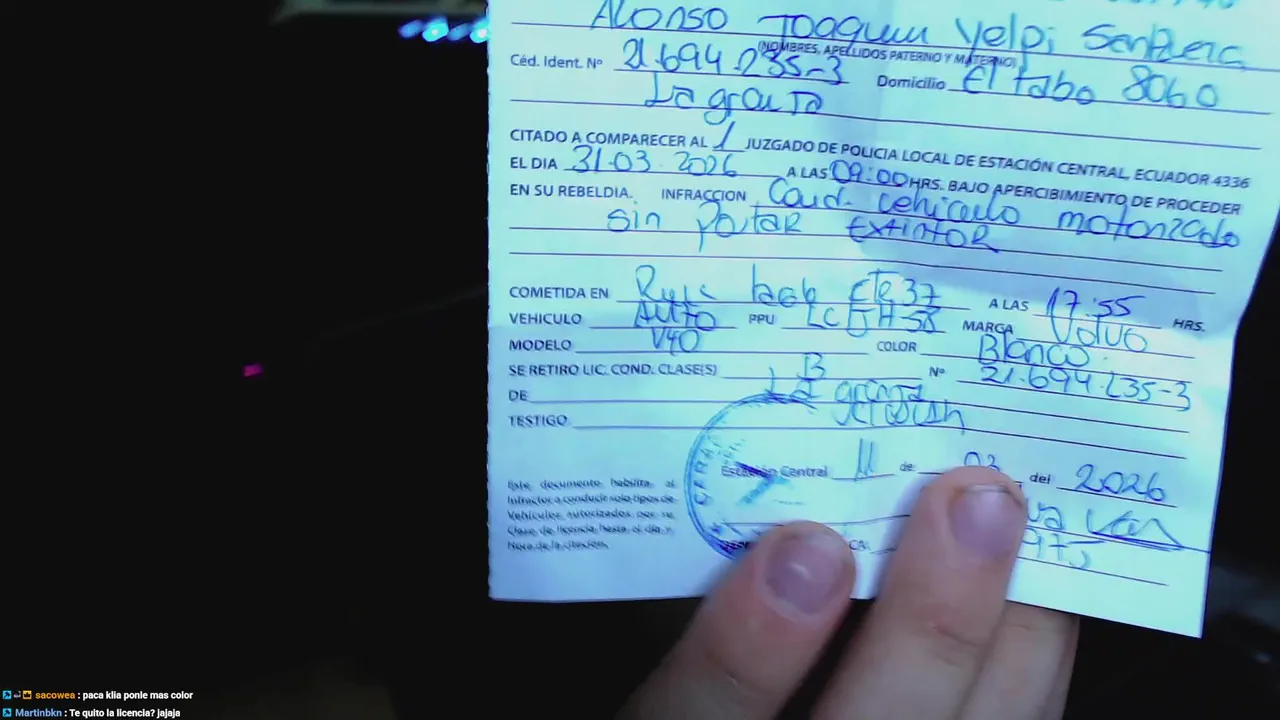 Alonso Joaquin Yelpi
(NOMBRES, APELLIDOS PATERNO Y MATERNO)
Céd. Ident. Nº 21.694.235-3 Domicilio El tabo 8060
La granja
CITADO A COMPARECER AL 1 JUZGADO DE POLICIA LOCAL DE ESTACIÓN CENTRAL, ECUADOR 4336
EL DIA 31-03-2026 A LAS 09:00 HRS. BAJO APERCIBIMIENTO DE PROCEDER
EN SU REBELDIA. INFRACCION Cond. vehiculo motorizado
sin portar extintor
COMETIDA EN A LAS 17:55 HRS.
VEHICULO Auto PPU MARCA Volvo
MODELO V40 COLOR Blanco
SE RETIRO LIC. COND. CLASE(S) B Nº 21.694.235-3
DE La granja
TESTIGO
Estación Central 11 de 03 del 2026
Este documento habilita al
infractor a conducir solo tipos de
Vehículos autorizados por su
Clase de licencia hasta el día y
Hora de la citación.
sacowea : paca klia ponle mas color
Martinbkn : Te quito la licencia? jajaja